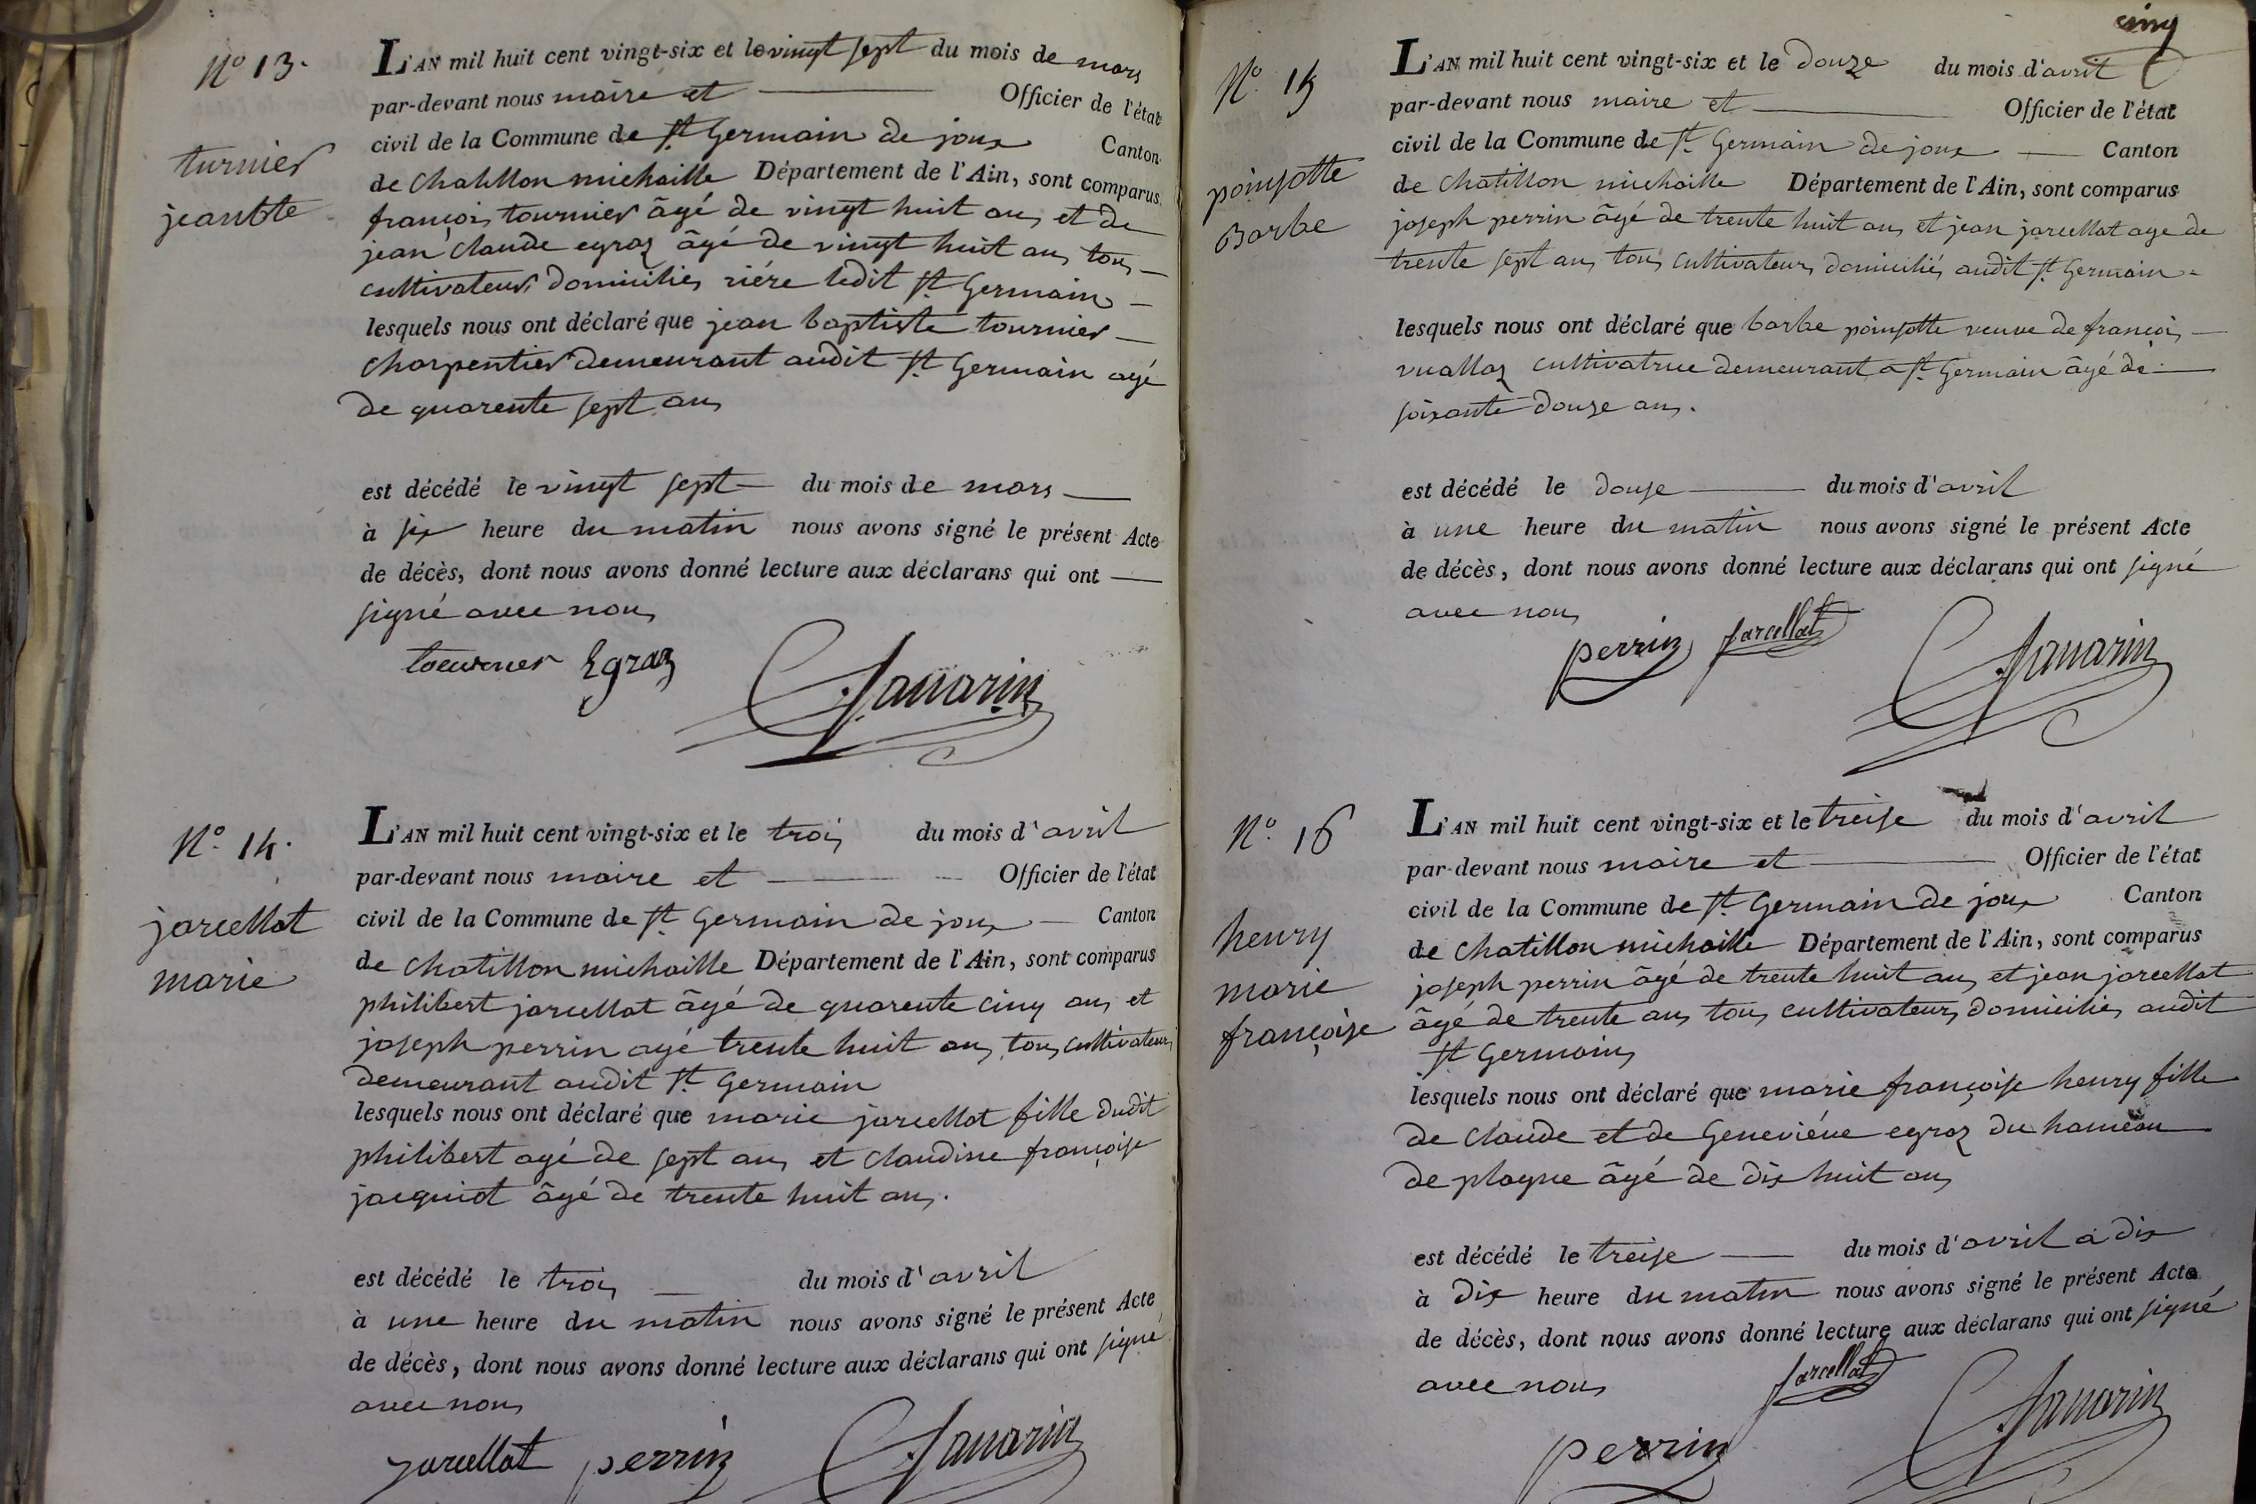 N.° 13.
L'AN mil huit cent vingt-six et le vingt sept du mois de mars
par-devant nous maire et Officier de l'état
civil de la Commune de St. Germain de joux Canton
de chatillon michaille Département de l'Ain, sont comparus
turnier
jean bte
françois tournier âgé de vingt huit ans et de
jean claude egraz âgé de vingt huit ans tous
cultivateurs domiciliés riére ledit St. Germain
lesquels nous ont déclaré que jean baptiste tournier
charpentier demeurant audit St. Germain agé
de quarente sept ans
est décédé le vingt sept du mois de mars
à six heure du matin nous avons signé le présent Acte
de décès, dont nous avons donné lecture aux déclarans qui ont
signé avec nous
tournier Egraz
N.° 14.
L'AN mil huit cent vingt-six et le trois du mois d'avril
par-devant nous maire et Officier de l'état
civil de la Commune de St. Germain de joux Canton
de chatillon michaille Département de l'Ain, sont comparus
jarcellat
marie
philibert jarcellat âgé de quarente cinq ans et
joseph perrin agé trente huit ans tous cultivateurs
demeurant audit St. Germain
lesquels nous ont déclaré que marie jarcellat fille dudit
philibert agé de sept ans et claudine françoise
jacquiot âgé de trente huit ans.
est décédé le trois du mois d'avril
à une heure du matin nous avons signé le présent Acte
de décès, dont nous avons donné lecture aux déclarans qui ont signé
avec nous
jarcellat perrin
cinq
N.° 15
L'AN mil huit cent vingt-six et le douze du mois d'avril
par-devant nous maire et Officier de l'état
civil de la Commune de St. Germain de joux Canton
de chatillon michaille Département de l'Ain, sont comparus
poinsotte
Barbe
joseph perrin âgé de trente huit ans et jean jarcellat age de
trente sept ans tous cultivateurs domiciliés audit St. Germain
lesquels nous ont déclaré que barbe poinsotte veuve de françois
vuallaz cultivatrice demeurant a St. Germain âgé de
soixante douze ans.
est décédé le douse du mois d'avril
à une heure du matin nous avons signé le présent Acte
de décès, dont nous avons donné lecture aux déclarans qui ont signé
avec nous
perrin jarcellat
N.° 16
L'AN mil huit cent vingt-six et le treise du mois d'avril
par-devant nous maire et Officier de l'état
civil de la Commune de St. Germain de joux Canton
de chatillon michaille Département de l'Ain, sont comparus
henry
marie
françoise
joseph perrin âgé de trente huit ans et jean jarcellat
âgé de trente ans tous cultivateurs domiciliés audit
St. Germain
lesquels nous ont déclaré que marie françoise henry fille
de claude et de Geneviéve egraz du hameau
de plagne âgé de dix huit ans
est décédé le treise du mois d'avril a dix
à dix heure du matin nous avons signé le présent Acte
de décès, dont nous avons donné lecture aux déclarans qui ont signé
avec nous
jarcellat
perrin